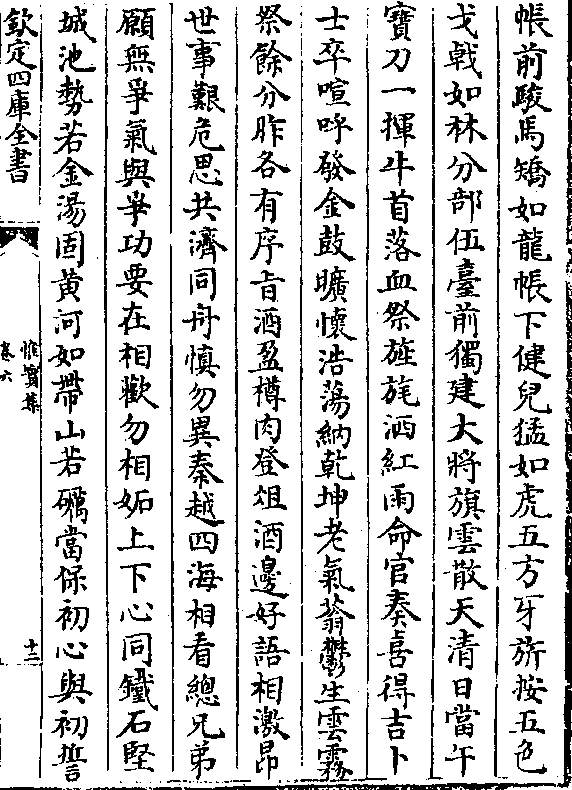 帳前駿馬矯如龍帳下健兒猛如虎五方牙旂按五色
戈戟如林分部伍臺前獨建大將旗雲散天清日當午
寶刀一揮牛首落血祭旌旄洒紅雨命官奏喜得吉卜
士卒喧呼發金鼓曠懷浩蕩納乾坤老氣蓊鬱生雲霧
祭餘分胙各有序旨酒盈樽肉登俎酒邊好語相激昂
世事艱危思共濟同舟慎勿異秦越四海相看總兄弟
願無爭氣與爭功要在相歡勿相妬上下心同鐵石堅
城池勢若金湯固黃河如帶山若礪當保初心與初誓
欽定四庫全書
惟實集
卷六
十二